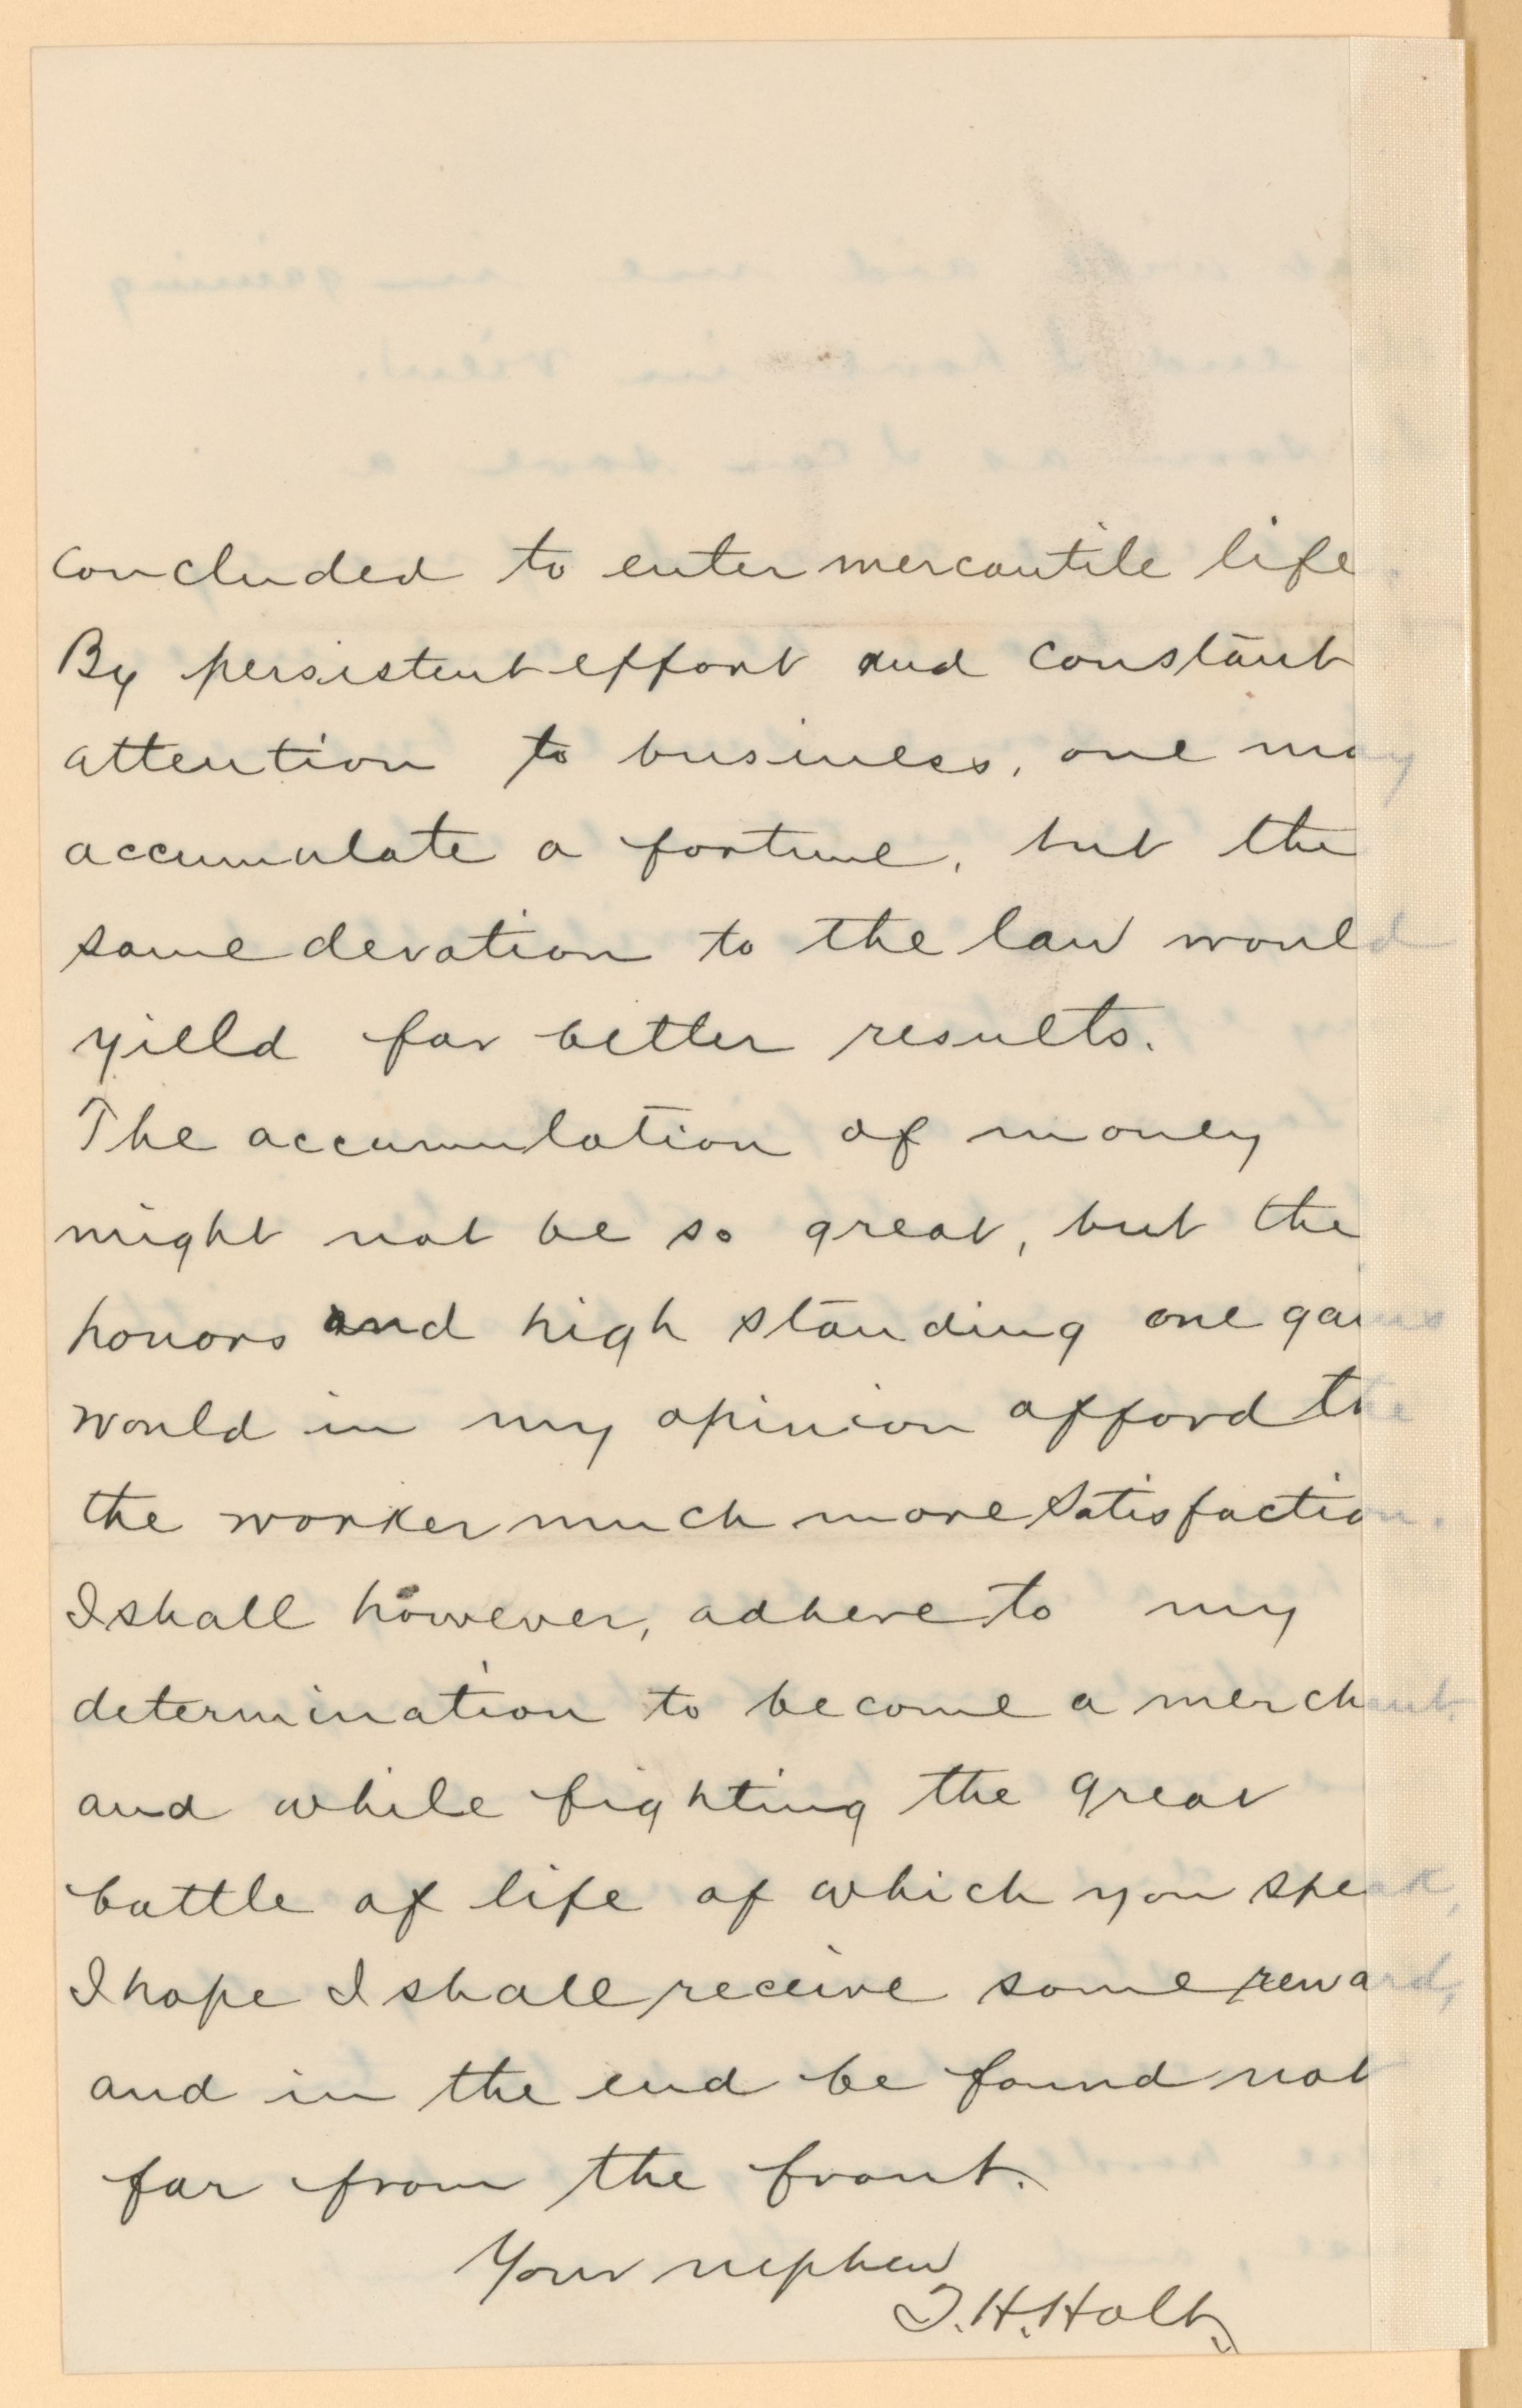 concluded to enter mercantile life.
By persistent effort and constant
attention to business, one may
accumulate a fortune, but the
same devotion to the law would
yield far better results.
The accumulation of money
might not be so great, but the
honors and high standing one gains
would in my opinion afford the
the worker much more satisfaction.
I shall however, adhere to my
determination to become a merchant.
and while fighting the great
battle of life of which you speak,
I hope I shall receive some reward,
and in the end be found not
far from the front.
Your nephew
T. H. Holt.